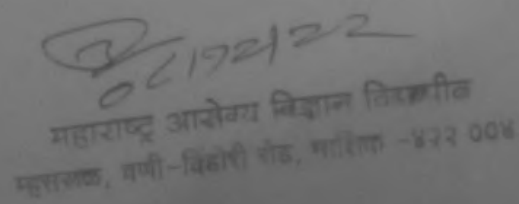 ०८/१२/२२
महाराष्ट्र आरोग्य विज्ञान विद्यापीठ
म्हसरूळ, वणी-दिंडोरी रोड, नाशिक -४२२ ००४